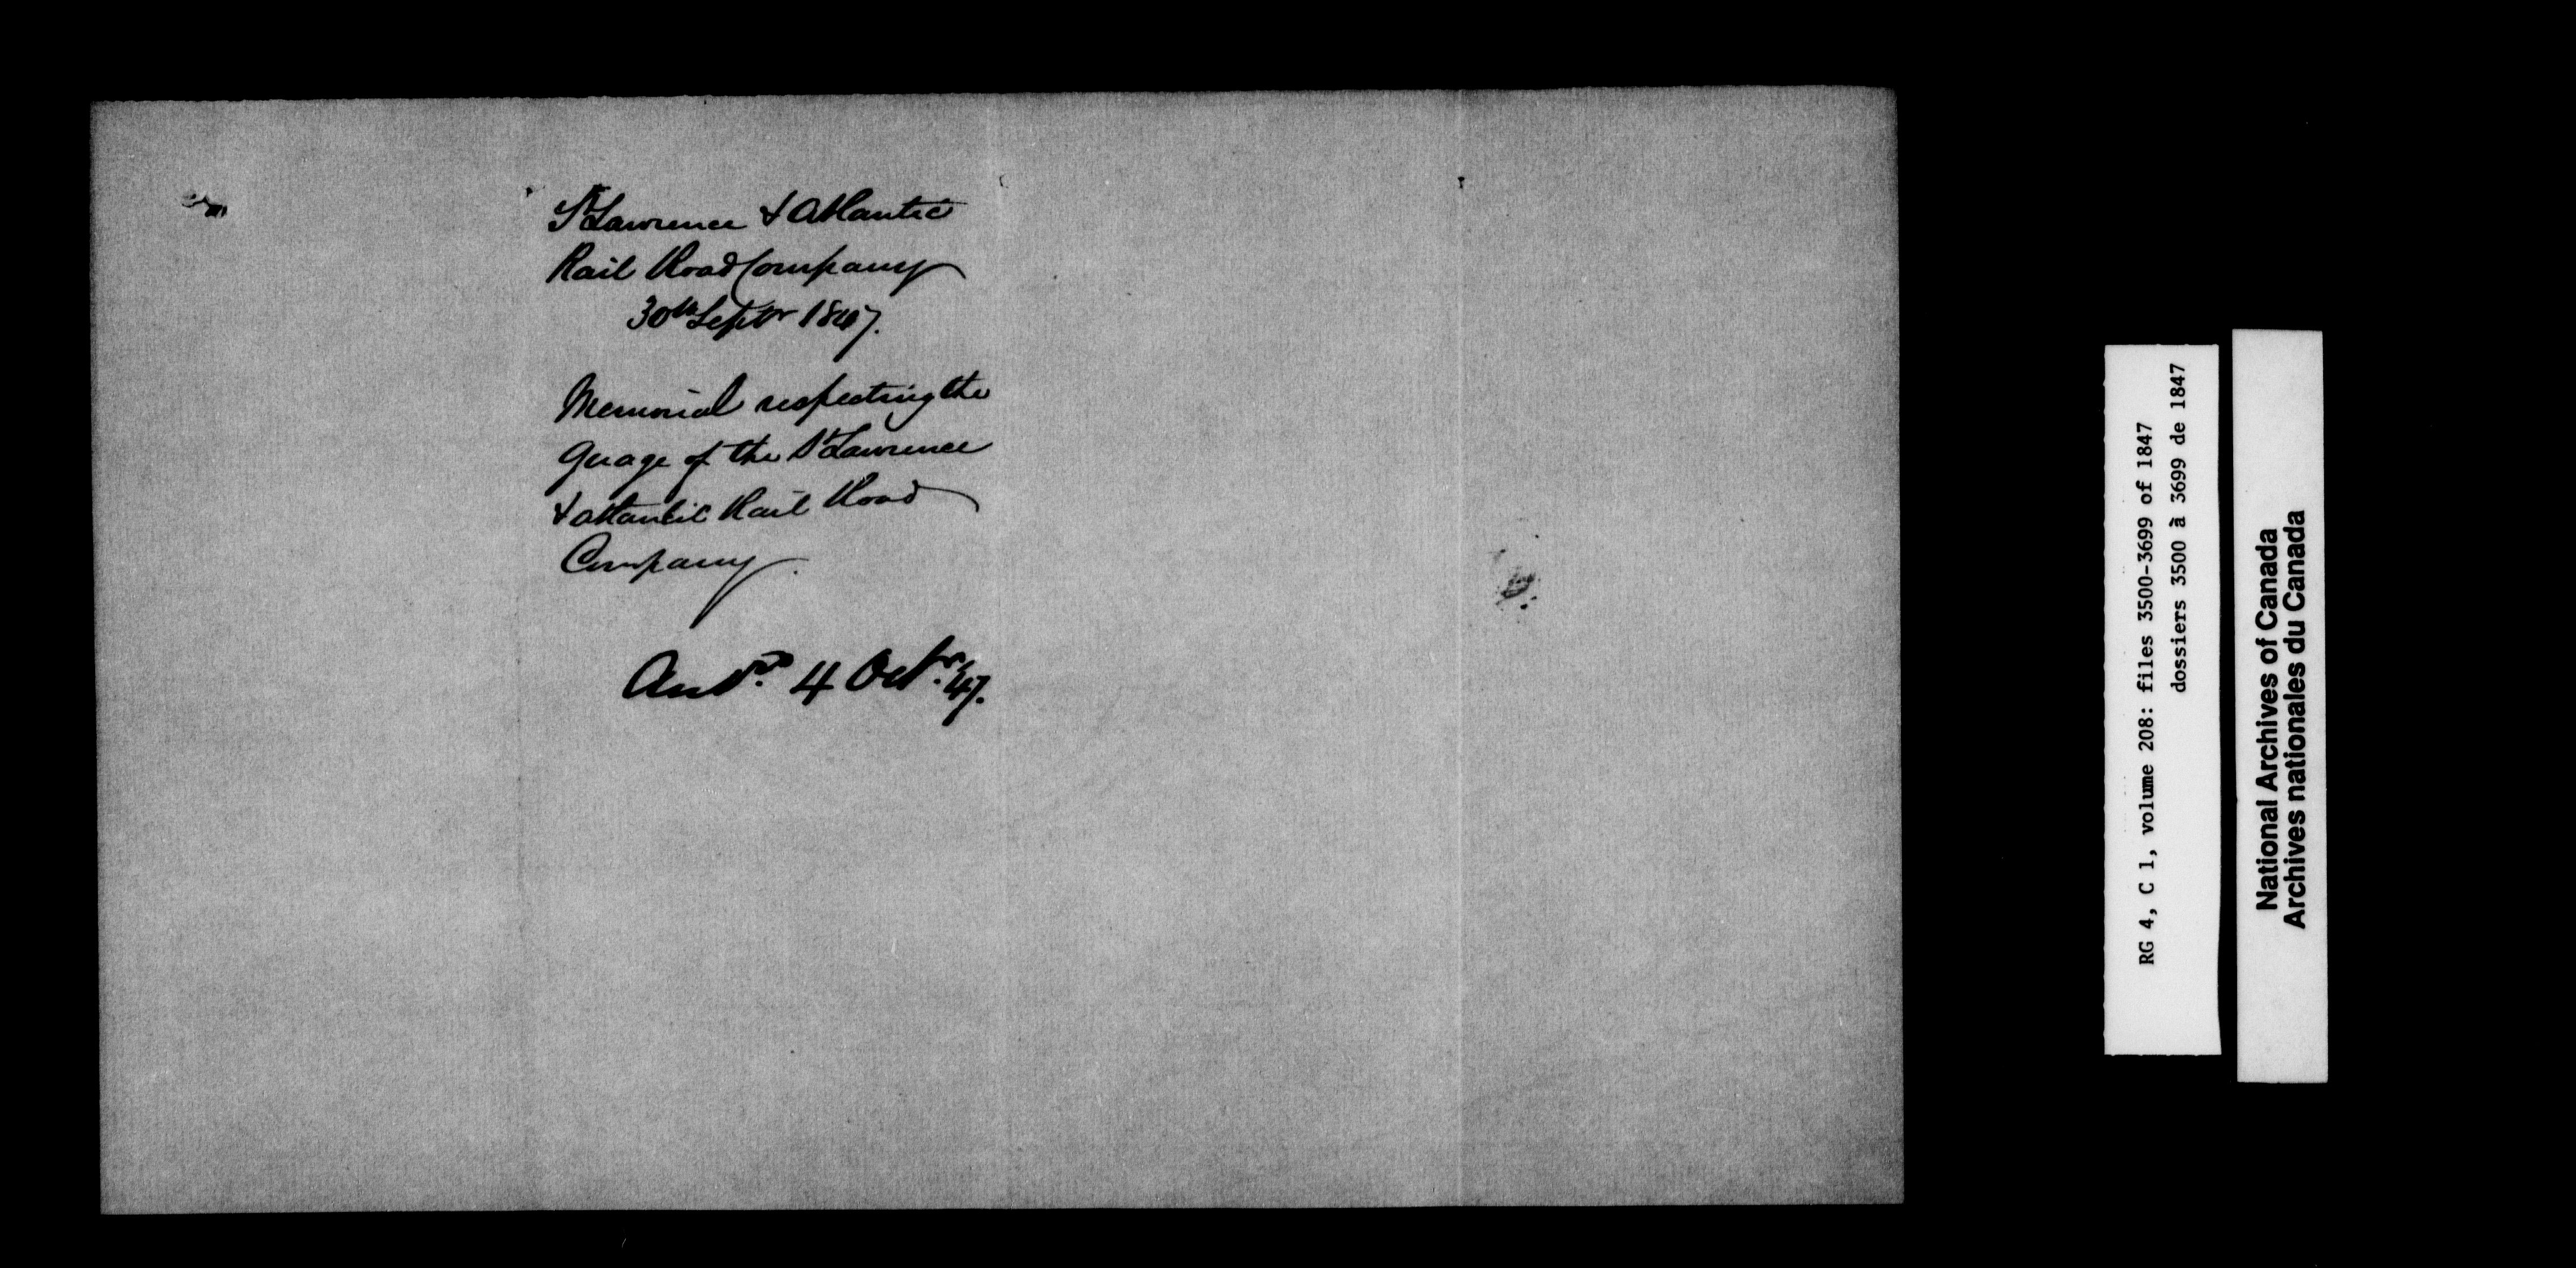 St Lawrence & Atlantic
Rail Road Company
30th Septr 1847.
Memorial respecting the
Guage of the St Lawrence
& Atlantic Rail Road
Company.
Ansd. 4 Octr. 47.
RG 4, C 1, volume 208: files 3500-3699 of 1847
dossiers 3500 à 3699 de 1847
National Archives of Canada
Archives nationales du Canada